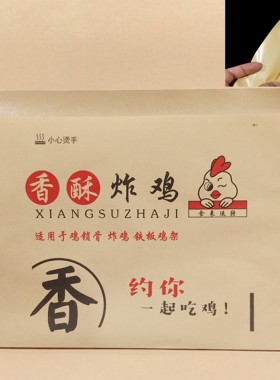 小心烫手
香酥炸鸡
XIANGSUZHAJI
适用于鸡锁骨 炸鸡 铁板鸡架
香
约你
一起吃鸡!